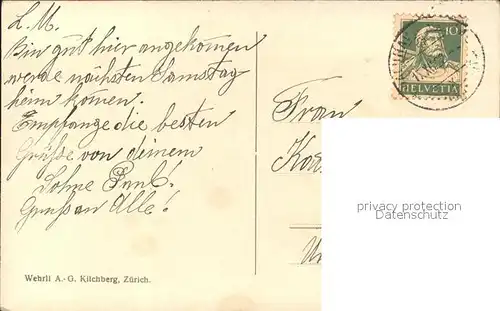 L. M.
Bin gut hier angekommen
werde nächsten Samstag
heim kommen.
Empfange die besten
Grüsse von deinem
Sohne Paul!
Gruss an Alle!
10
HELVETIA
Frau
privacy protection
Datenschutz
Wehrli A.-G. Kilchberg, Zürich.